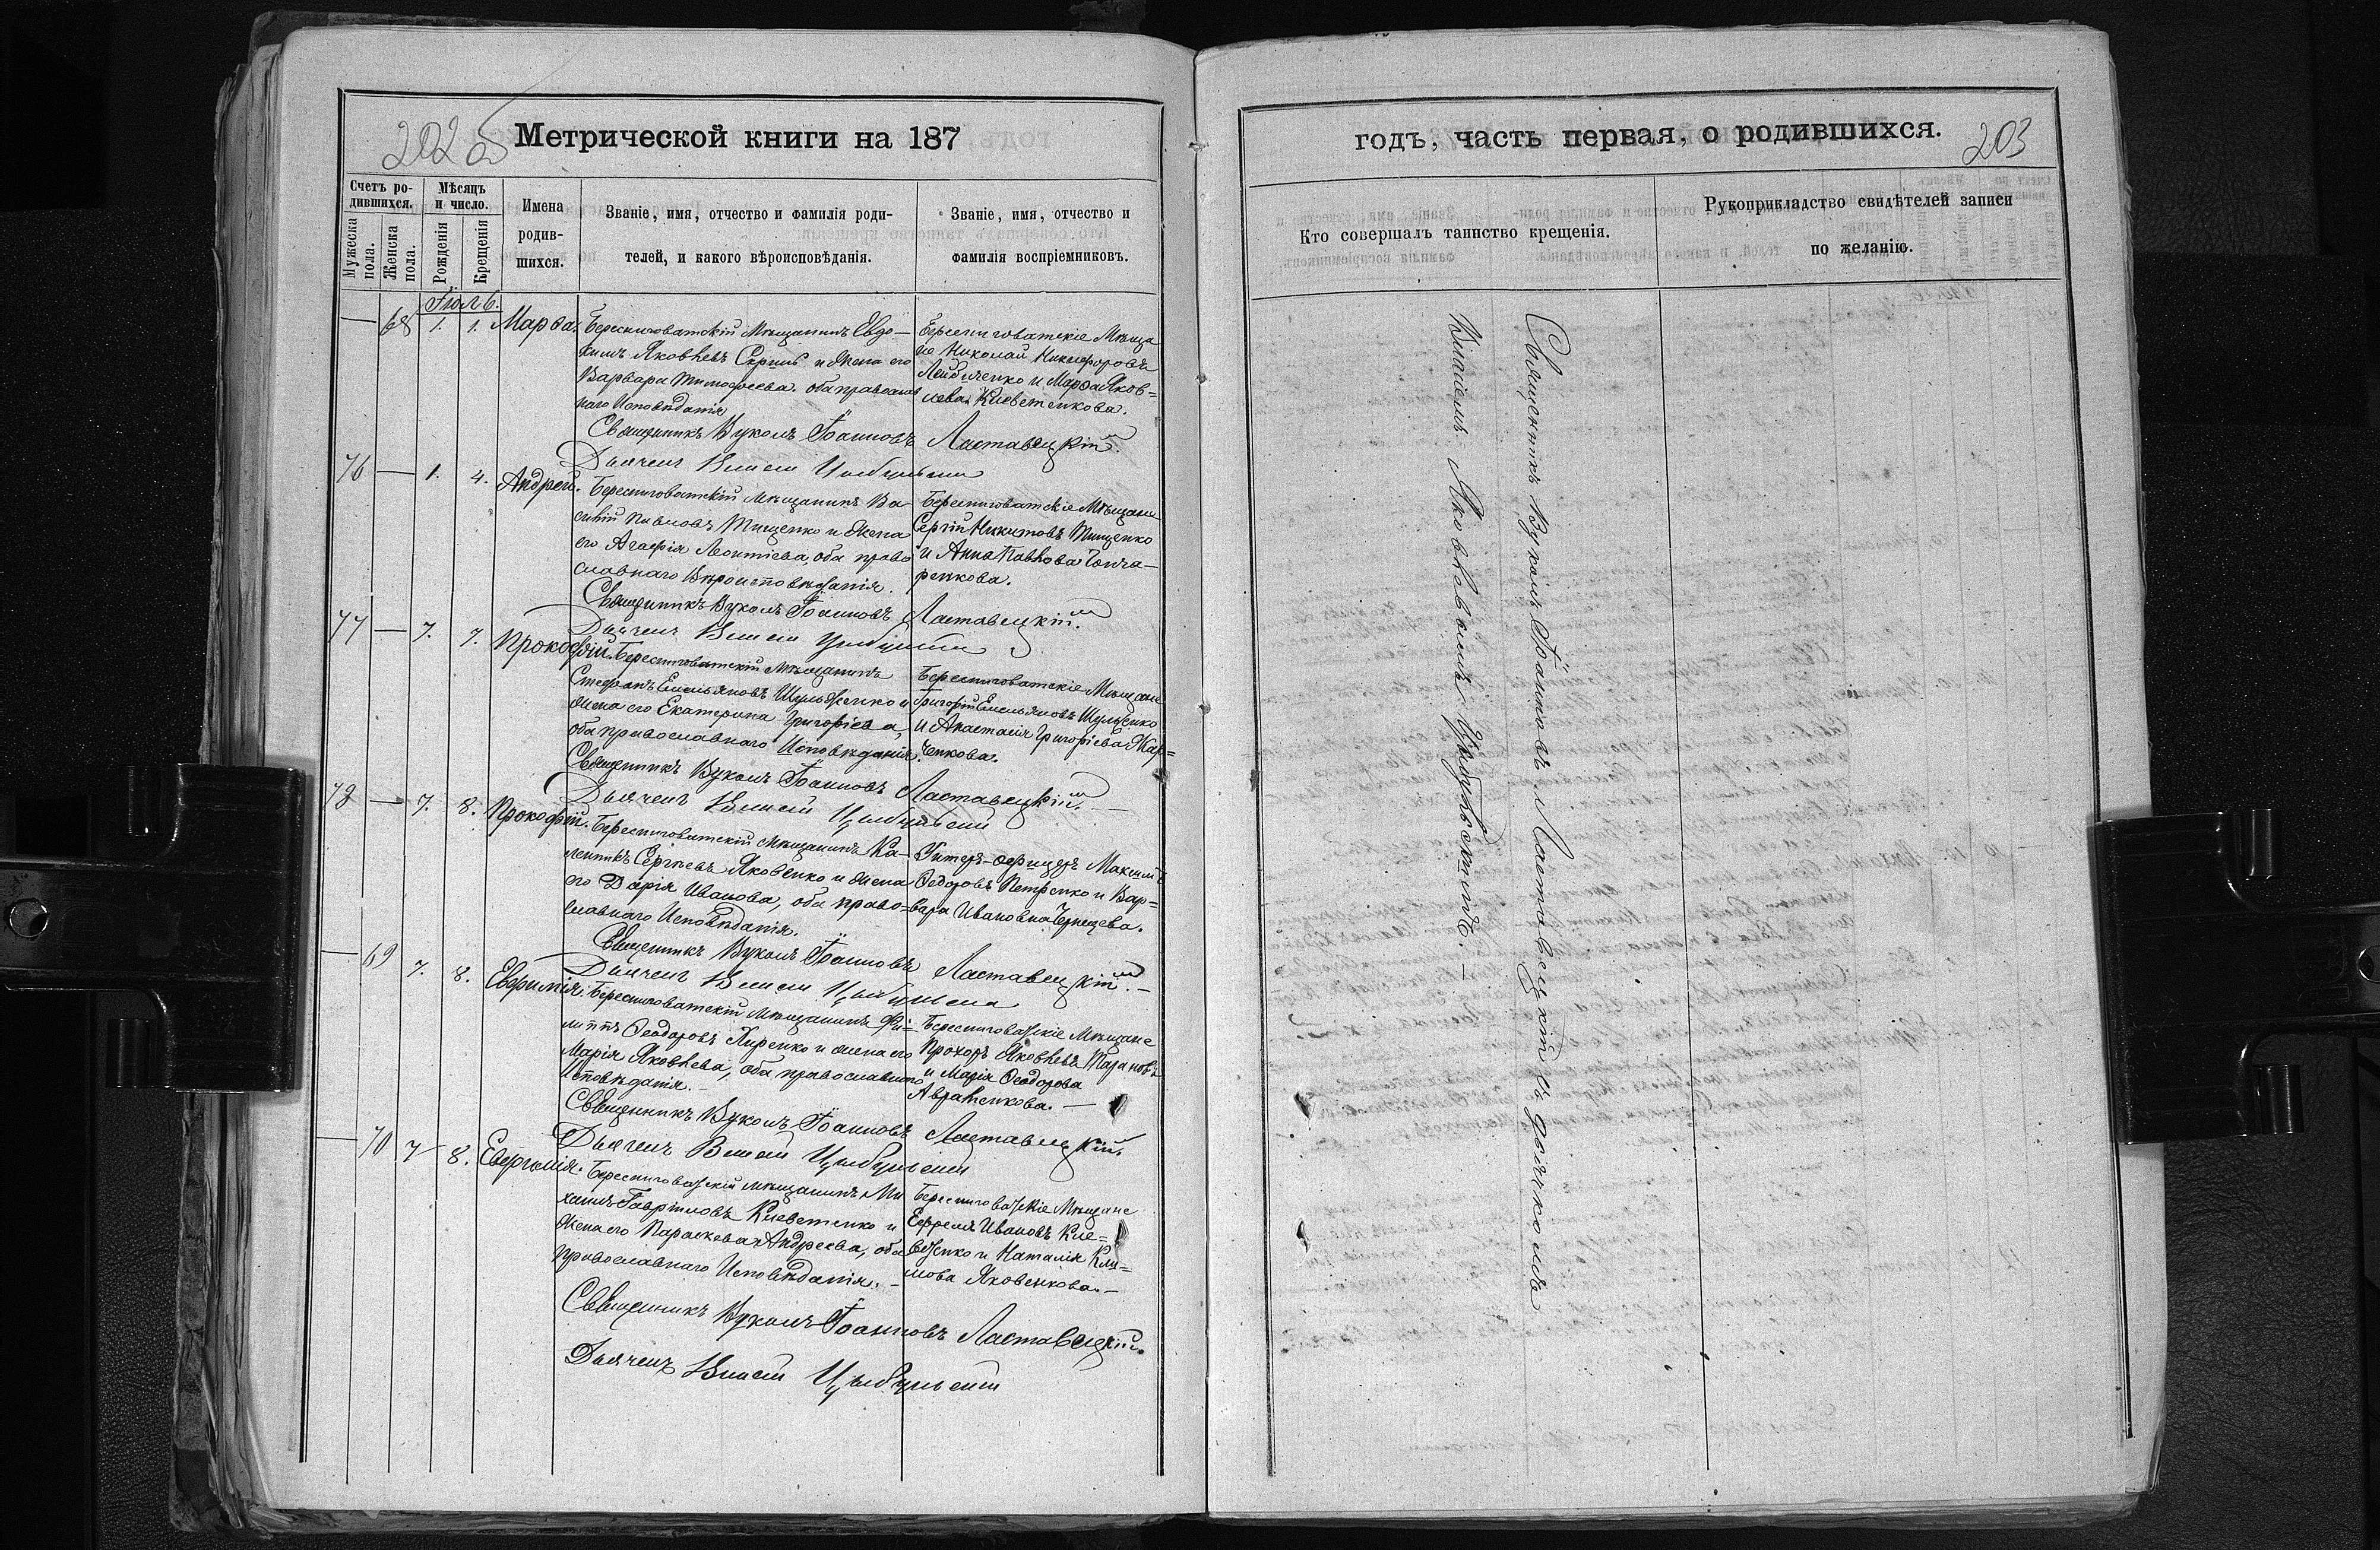 202 об
Метрической книги на 187
Счетъ ро-
дившихся.
Мѣсяцъ
и число.
Имена
родив-
шихся.
Званіе, имя, отчество и фамилія роди-
телей, и какого вѣроисповѣданія.
Званіе, имя, отчество и
фамилія воспріемниковъ.
Мужеска
пола.
Женска
пола.
Рожденія
Крещенія
Іюль
68 1. 1. Марѳа.
Берестоватскій Мѣщанинъ Евдо-
кимъ Яковлевъ и жена его
Варвара Тимофеева оба православ
наго Исповѣданія
Берестоватскіе Мѣща
не Николай Никифоровъ
и Марѳа Яков=
лева Киеветенкова.
Священникъ Вуколъ Іоанновъ Ластавецкій.
Дьячекъ Цыбульскій
76 1. 4. Андрей.
Берестоватскій мѣщанинъ Ва-
силій Павловъ Тищенко и жена
его Агафія Леонтіева, оба право
славнаго Вѣроисповѣданія.
Берестоватскіе Мѣщане
Сергій Никитовъ Тищенко
и Анна Павлова Гонча-
ренкова.
Священникъ Вуколъ Іоанновъ Ластавецкій.
Дьячекъ Цыбульскій
77 7. 7. Прокофій.
Берестоватскій мѣщанинъ
Стефанъ Емельяновъ Шульженко и
жена его Екатерина Григоріева,
оба православнаго Исповѣданія.
Берестоватскіе Мѣщане
Григорій Емельяновъ Шульженко
и Анастасія Григоріева Хар=
ченкова.
Священникъ Вуколъ Іоанновъ Ластавецкій.
Дьячекъ Цыбульскій
78 7. 8. Прокофій.
Берестоватскій мѣщанинъ Ка-
леникъ Сергіевъ Яковенко и жена
его Дарія Иванова, оба право=
славнаго Исповѣданія.
Унтеръ-офицеръ Максимъ
Ѳедоровъ Петренко и Вар=
вара Ивановна Чернецева.
Священникъ Вуколъ Іоанновъ Ластавецкій.
Дьячекъ Цыбульскій
69 7. 8. Евфимія.
Берестоватскій мѣщанинъ Фи=
липпъ Ѳеодоровъ Киренко и жена его
Марія Яковлева, оба православнаго
Исповѣданія.
Берестоватскіе Мѣщане
Прохоръ Яковлевъ Тарановъ
и Марія Ѳеодорова
Авраменкова.
Священникъ Вуколъ Іоанновъ Ластавецкій.
Дьячекъ Цыбульскій
70 7 8. Евфимія.
Берестоватскій мѣщанинъ Ми
хаилъ Гавріиловъ Киеветенко и
жена его Параскева Андреева, оба
православнаго Исповѣданія.
Берестоватскіе Мѣщане
Ефремъ Ивановъ Кие=
ветенко и Наталія Кли=
мова Яковенкова.
Священникъ Вуколъ Іоанновъ Ластавецкій.
Дьячекъ Цыбульскій
годъ, часть первая, о родившихся.
203
Кто совершалъ таинство крещенія.
Рукоприкладство свидѣтелей записи
по желанію.
Священникъ Вуколъ Іоанновъ Ластавецкій съ дьячкомъ
Яковлевымъ Цыбульскимъ.